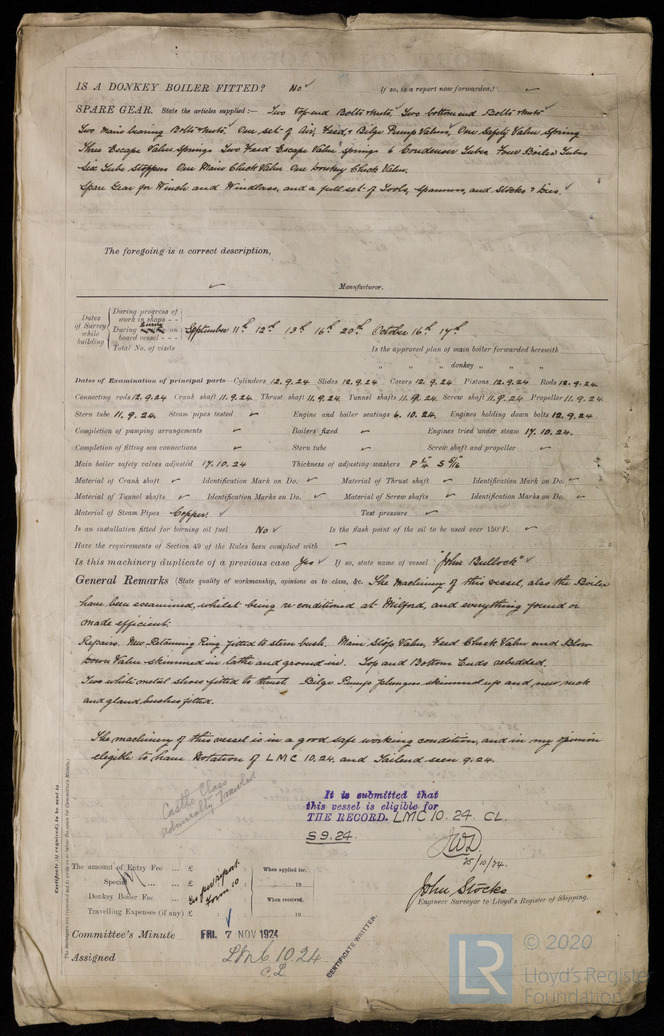 IS A DONKEY BOILER FITTED? No ✓ If so, is a report now forwarded? ✓
SPARE GEAR. State the articles supplied:— Two top end Bolts & nuts, Two bottom end Bolts & nuts
Two Main bearing Bolts & nuts, One set of Air, Feed, & Bilge Pump Valves, One Safety Valve Spring
Three Escape Valve Springs Two Feed Escape Valve springs 6 Condenser Tubes Four Boiler Tubes
Six Tube Stoppers One Main Check Valve One Donkey Check Valve.
Spare Gear for Winch and Windlass, and a full set of Tools, Spanners, and Stocks & Dies. ✓
The foregoing is a correct description,
✓ Manufacturer.
Dates of Survey while building
During progress of work in shops - -
During on board vessel - - -
Total No. of visits
September 11th 12th 13th 16th 20th October 16th 17th
Is the approved plan of main boiler forwarded herewith
" " " donkey " " "
Dates of Examination of principal parts—Cylinders 12.9.24 Slides 12.9.24 Covers 12.9.24 Pistons 12.9.24 Rods 12.9.24
Connecting rods 12.9.24 Crank shaft 11.9.24 Thrust shaft 11.9.24 Tunnel shafts 11.9.24 Screw shaft 11.9.24 Propeller 11.9.24
Stern tube 11.9.24. Steam pipes tested ✓ Engine and boiler seatings 6.10.24. Engines holding down bolts 12.9.24.
Completion of pumping arrangements ✓ Boilers fixed ✓ Engines tried under steam 17.10.24.
Completion of fitting sea connections ✓ Stern tube ✓ Screw shaft and propeller ✓
Main boiler safety valves adjusted 17.10.24 Thickness of adjusting washers P 1/4 S 5/16
Material of Crank shaft ✓ Identification Mark on Do. ✓ Material of Thrust shaft ✓ Identification Mark on Do. ✓
Material of Tunnel shafts ✓ Identification Marks on Do. ✓ Material of Screw shafts ✓ Identification Marks on Do. ✓
Material of Steam Pipes Copper. ✓ Test pressure ✓
Is an installation fitted for burning oil fuel No ✓ Is the flash point of the oil to be used over 150°F. ✓
Have the requirements of Section 49 of the Rules been complied with ✓
Is this machinery duplicate of a previous case Yes ✓ If so, state name of vessel "John Bullock" ✓
General Remarks (State quality of workmanship, opinions as to class, &c. The Machinery of this vessel, also the Boiler
have been examined, whilst being re-conditioned at Milford, and everything found or
made efficient.
Repairs. New Retaining Ring fitted to stern bush. Main Stop Valve, Feed Check Valve and Blow
Down Valve skimmed in lathe and ground in. Top and Bottom Ends rebedded.
Two white metal shoes fitted to thrust. Bilge Pump plungers skimmed up and new neck
and gland bushes fitted.
The machinery of this vessel is in a good safe working condition, and in my opinion
eligible to have Notation of LMC 10.24. and Tailend seen 9.24.
Castle Class
Admiralty Trawler
It is submitted that
this vessel is eligible for
THE RECORD. LMC 10.24. CL.
S 9.24.
JWD
25/10/24.
The amount of Entry Fee ... £
Special ... £
Donkey Boiler Fee ... £
Travelling Expenses (if any) £
as per report Form 10
When applied for,
19
When received,
19
John Stocks
Engineer Surveyor to Lloyd's Register of Shipping.
Committee's Minute FRI. 7 NOV 1924
Assigned LMC 10.24
C.L
CERTIFICATE WRITTEN.
Certificate (if required) to be sent to
© 2020
LR Lloyd's Register
Foundation